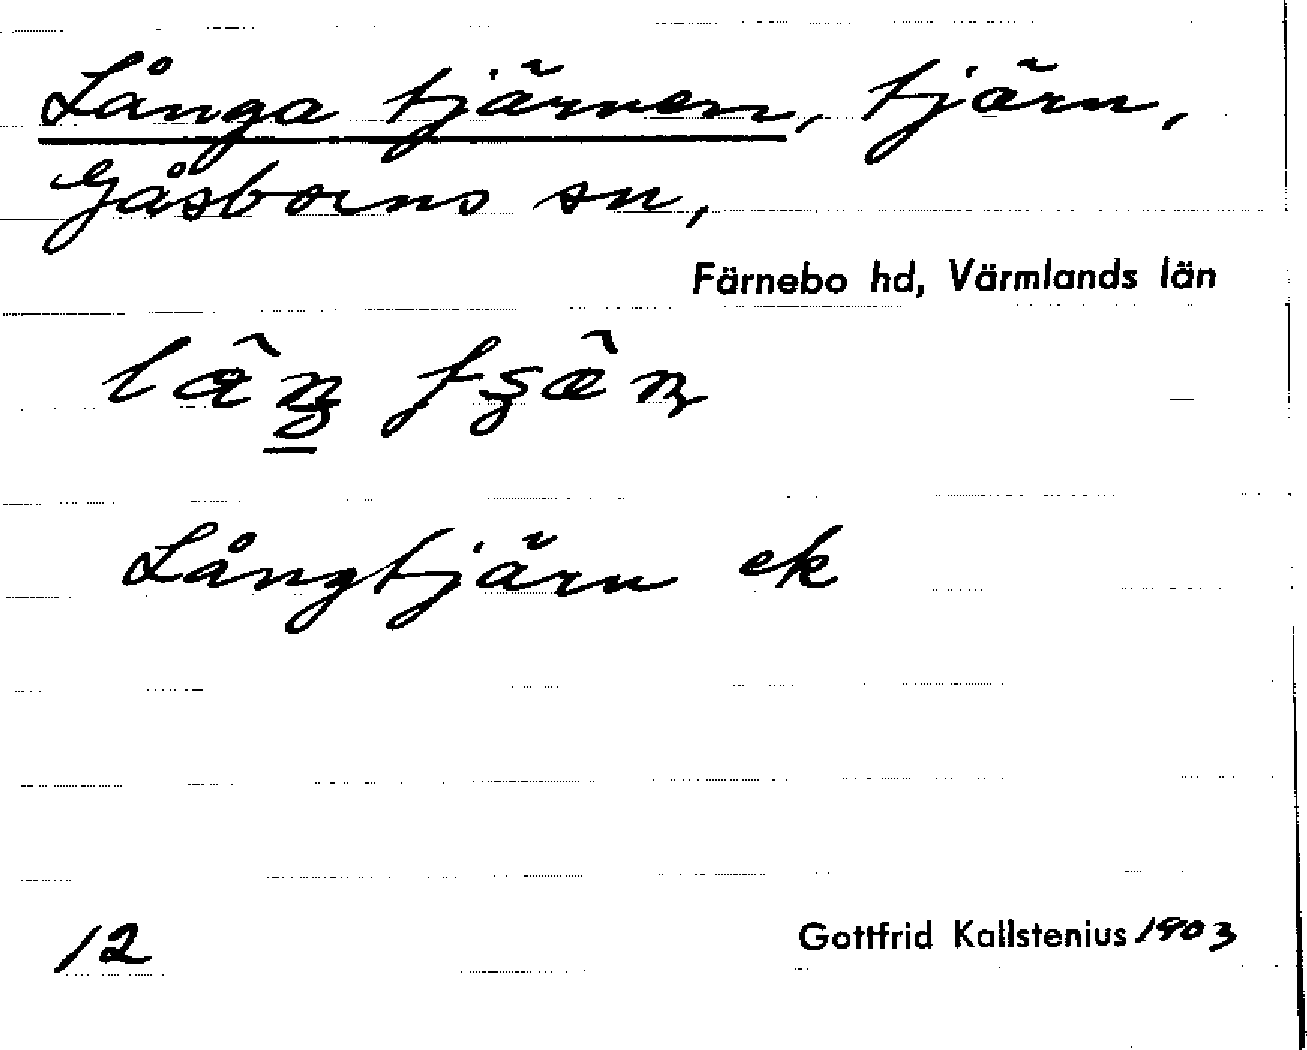 Långa tjärnen, tjärn,
Gåsborns sn,
Färnebo hd, Värmlands län
Långtjärn ek
12
Gottfrid Kallstenius 1903